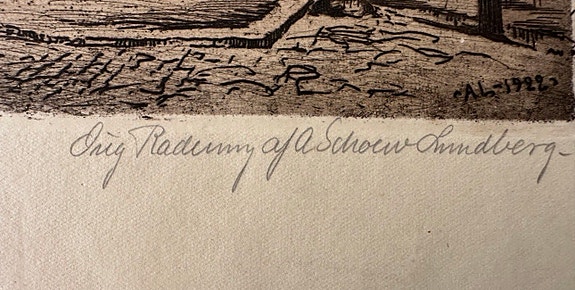 AL-1922
Orig Radering af A Schoew Lundberg-